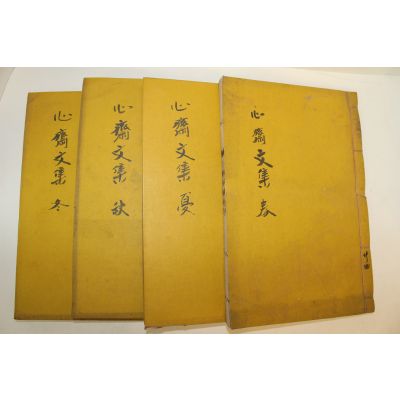 心齋文集 春
心齋文集 夏
心齋文集 秋
心齋文集 冬